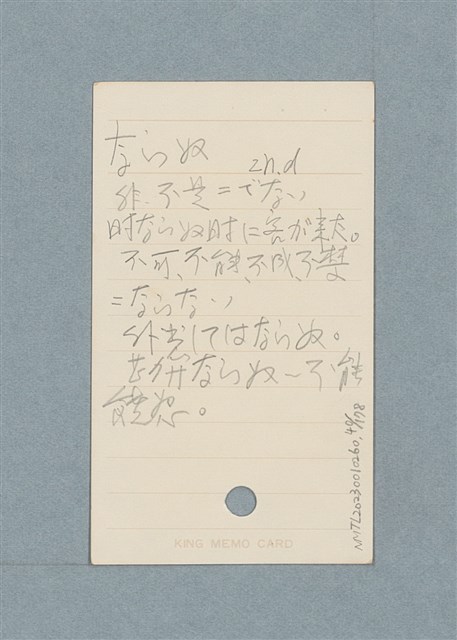 なら奴
2h.d
非.不是=でない
时なら奴时に客が来た。
不可、不能、不成、不禁
=ならない
外出してはならぬ。
勘弁なら奴～不能
饒恕。
KING MEMO CARD
NMTL20230010260,48/178